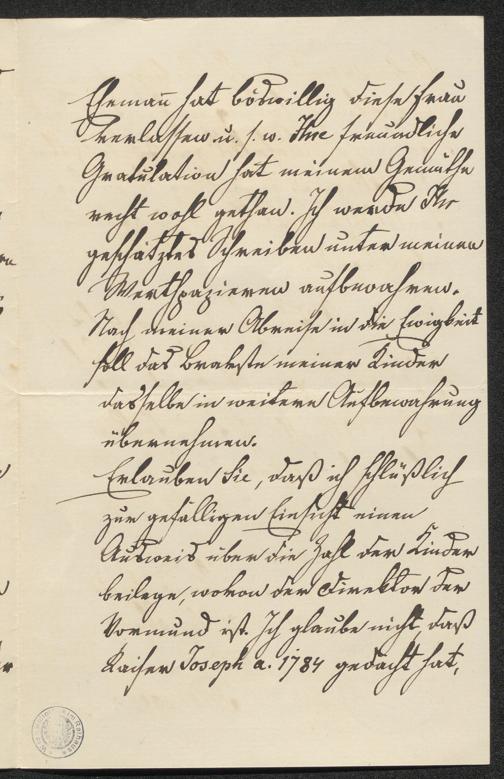 Ehemañ hat böswillig diese Frau
verlassen u. s. w. Ihre freundliche
Gratulation hat meinem Gemüthe
recht wohl gethan. Ich werde Ihr
geschätztes Schreiben unter meinen
Werthpapieren aufbewahren.
Nach meiner Abreise in die Ewigkeit
soll das bravste meiner Kinder
dasselbe in weitere Aufbewahrung
übernehmen.
Erlauben Sie, daß ich schlüßlich
zur gefälligen Einsicht einen
Ausweis über die Zahl der Kinder
beilege, wovon der Direktor der
Vormund ist. Ich glaube nicht, daß
Kaiser Joseph a. 1784 gedacht hat,